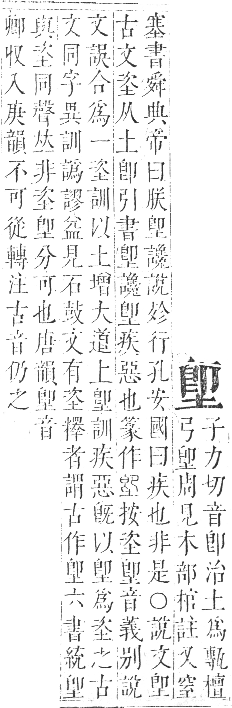 堲
子力切音卽治土爲甎檀
弓堲周見木部棺註又窒
塞書舜典帝曰朕堲讒說殄行孔安國曰疾也非是○說文堲
古文垐从土卽引書堲讒堲疾惡也篆作按垐堲音義别說
文誤合爲一垐訓以土增大道上堲訓疾惡旣以堲爲垐之古
文同字異訓譌謬益見石鼓文有垐者謂古作堲六書統堲
與垐同聲𠀤非垐堲分可也唐韻堲音
卿收入庚韻不可從轉注古音仍之